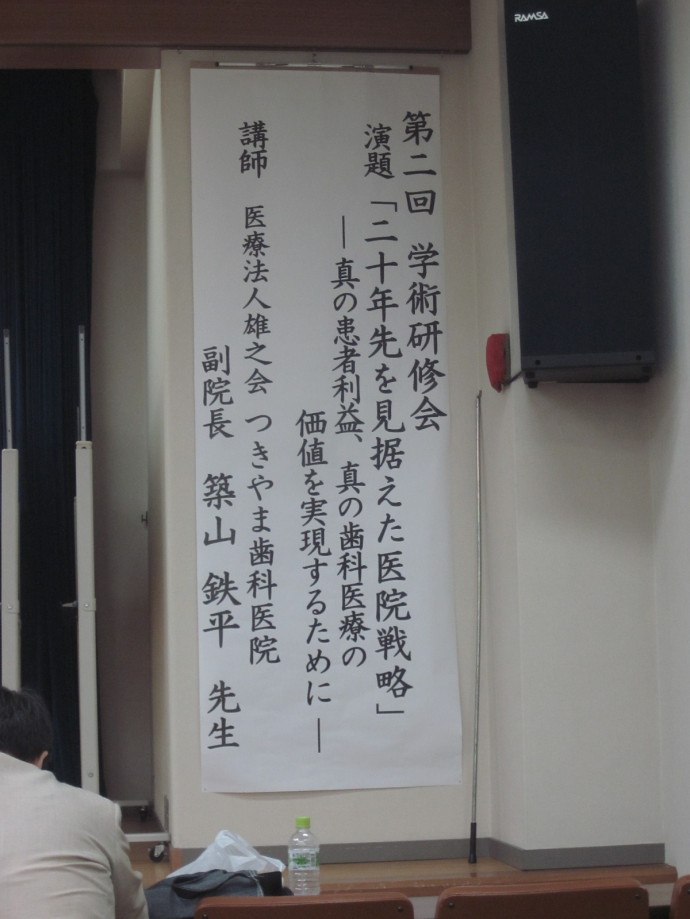 第二回 学術研修会
演題 「二十年先を見据えた医院戦略」
―真の患者利益、真の歯科医療の
価値を実現するために―
講師 医療法人雄之会 つきやま歯科医院
副院長 築山 鉄平 先生
RAMSA